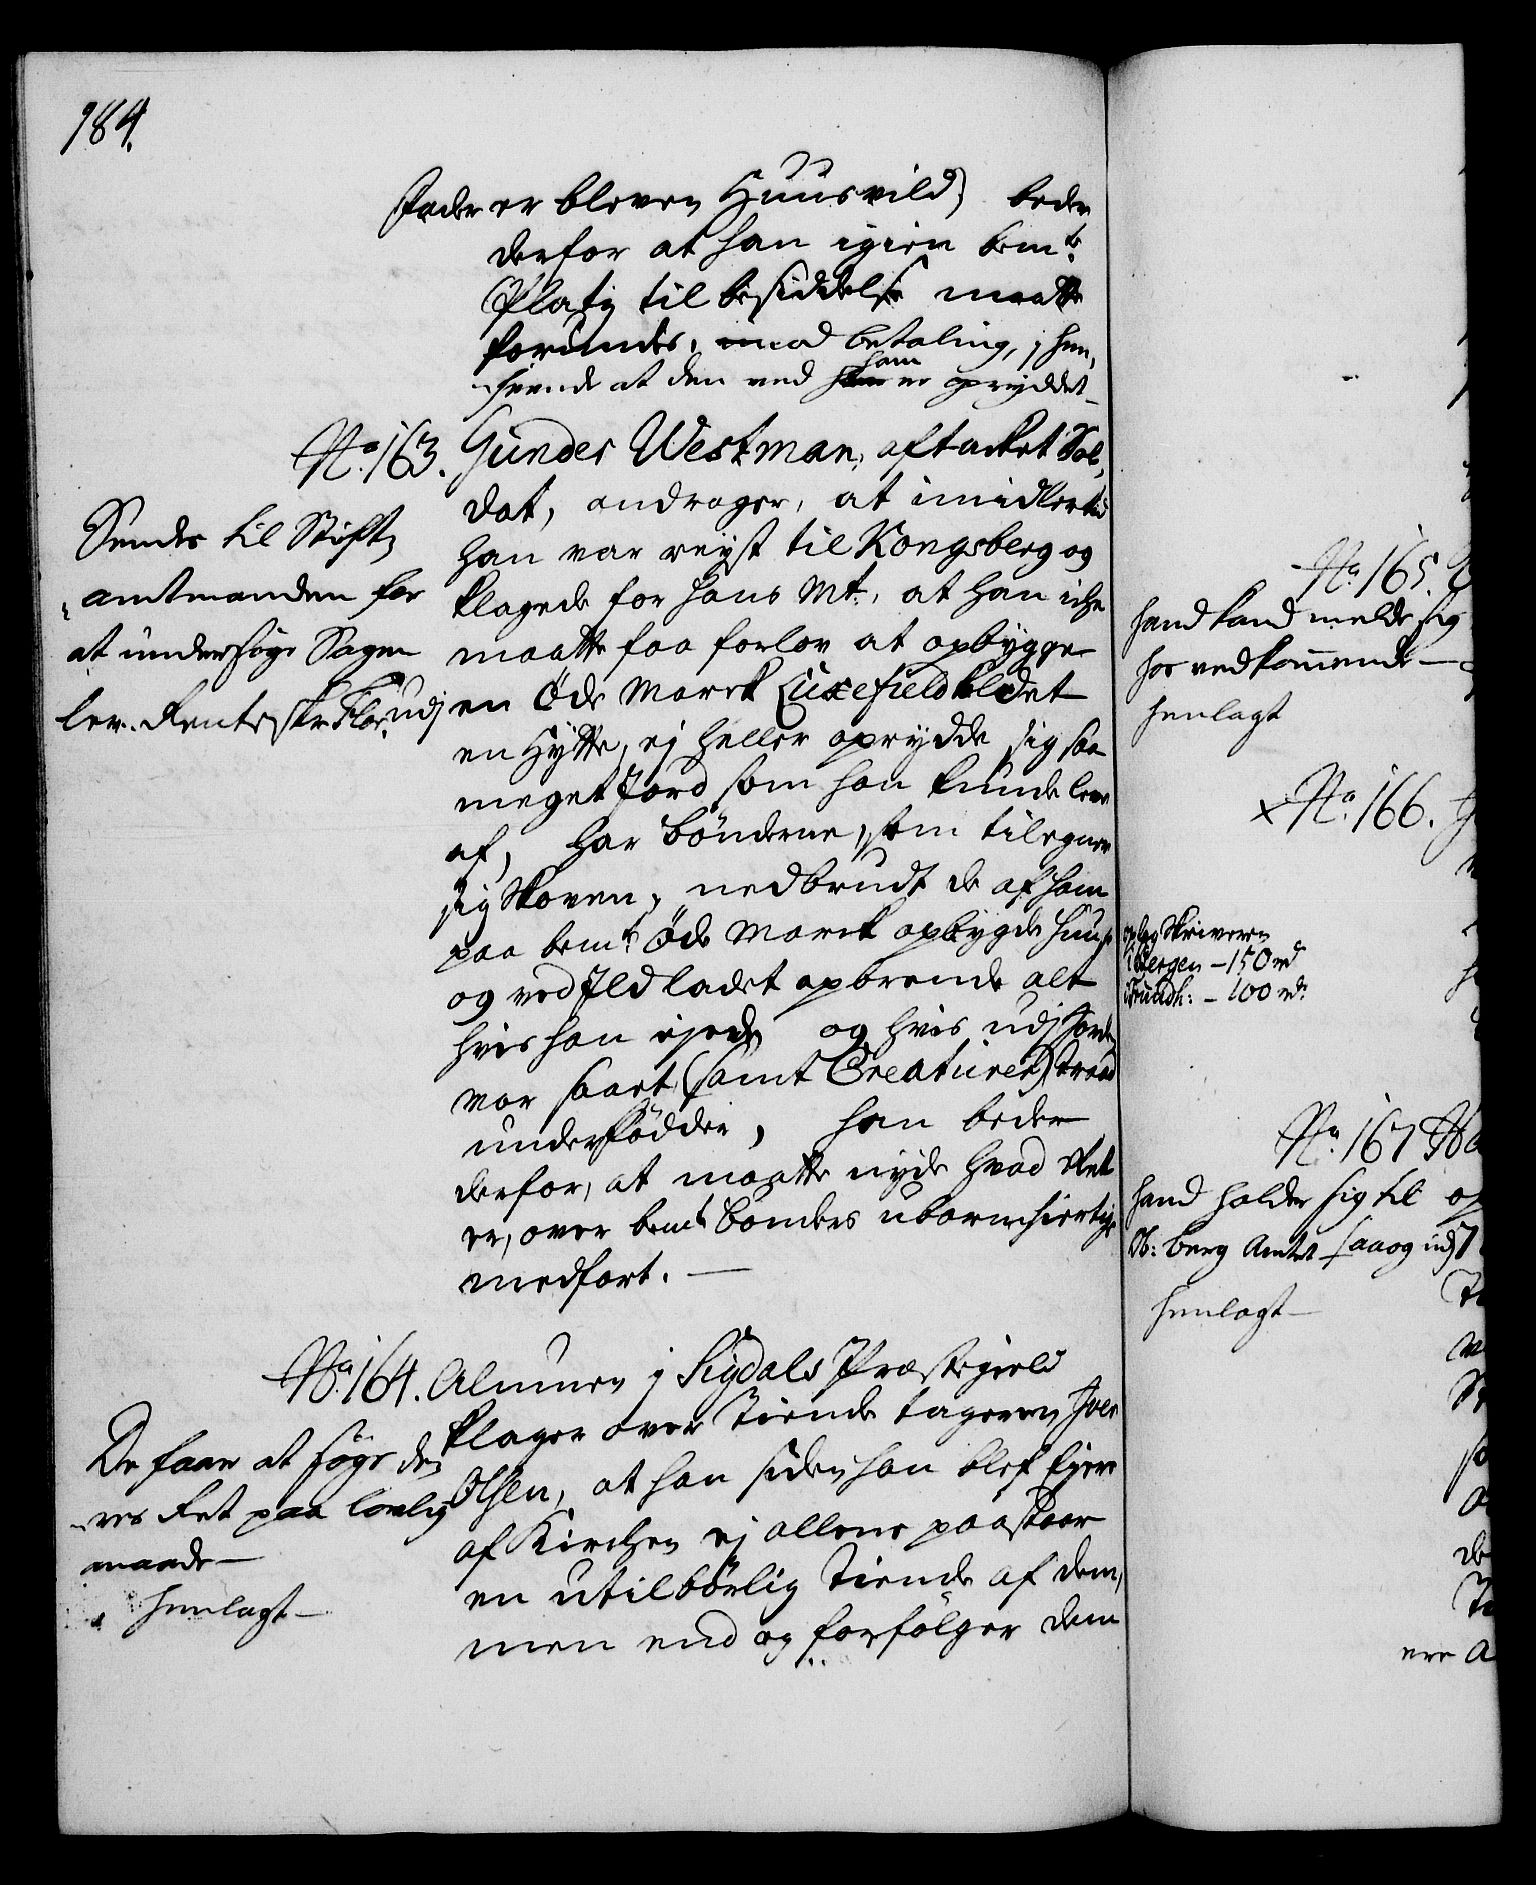 984.
Fader er bleven Huusvild) beder
derfor at han igien bem.te
Platz til besiddelse maatte
forundes, imod betaling, i hen,
seende at den ved ham er opryddet
No. 163. Gunder Westman, aftacket Sol,
dat, andrager, at imidlertid
han var reyst til Kongsberg og
klagede for Hans Mt. at han icke
maatte faa forlov at opbygge
en Øde Marck Luxefield kldet
en Hytte, ej heller oprydde sig saa
meget Jord som han kunde leve
af, har bønderne, som tilegner
sig Skoven, nedbrudt de af ham
paa bemt. Øde Marck opbygde Huuse
og ved Ild ladet opbrende alt
hvis han ejede og hvis udj Jorden
var saaet (samt Creaturer) traad
under fødder, han beder
derfor, at maatte nyde hvad Ret
er, over bemt. Bønders ubarmhiertige
medfart. —
Sendes til Stift,
amtmanden for
at undersøge Sagen
lev. Renteskr. Flor. udj
No. 164. Almuen j Sigdals Præstegield
klager over Tiende tageren Iver
Olsen, at han siden han blef Ejere
af Kirchen ej allene paastaar
en utilbørlig Tiende af dem,
men end og forfølger dem
De faar at søge de
res Ret paa lovlig
maade —
henlagt —
No. 165.
hand kand melde sig
hos vedkommende —
henlagt
x No. 166.
Skriveren
Bergen — 150 rd
Trundh: — 100 rd.
No. 167
hand holder sig til
Ob: berg Amtet saa og indj
henlagt —